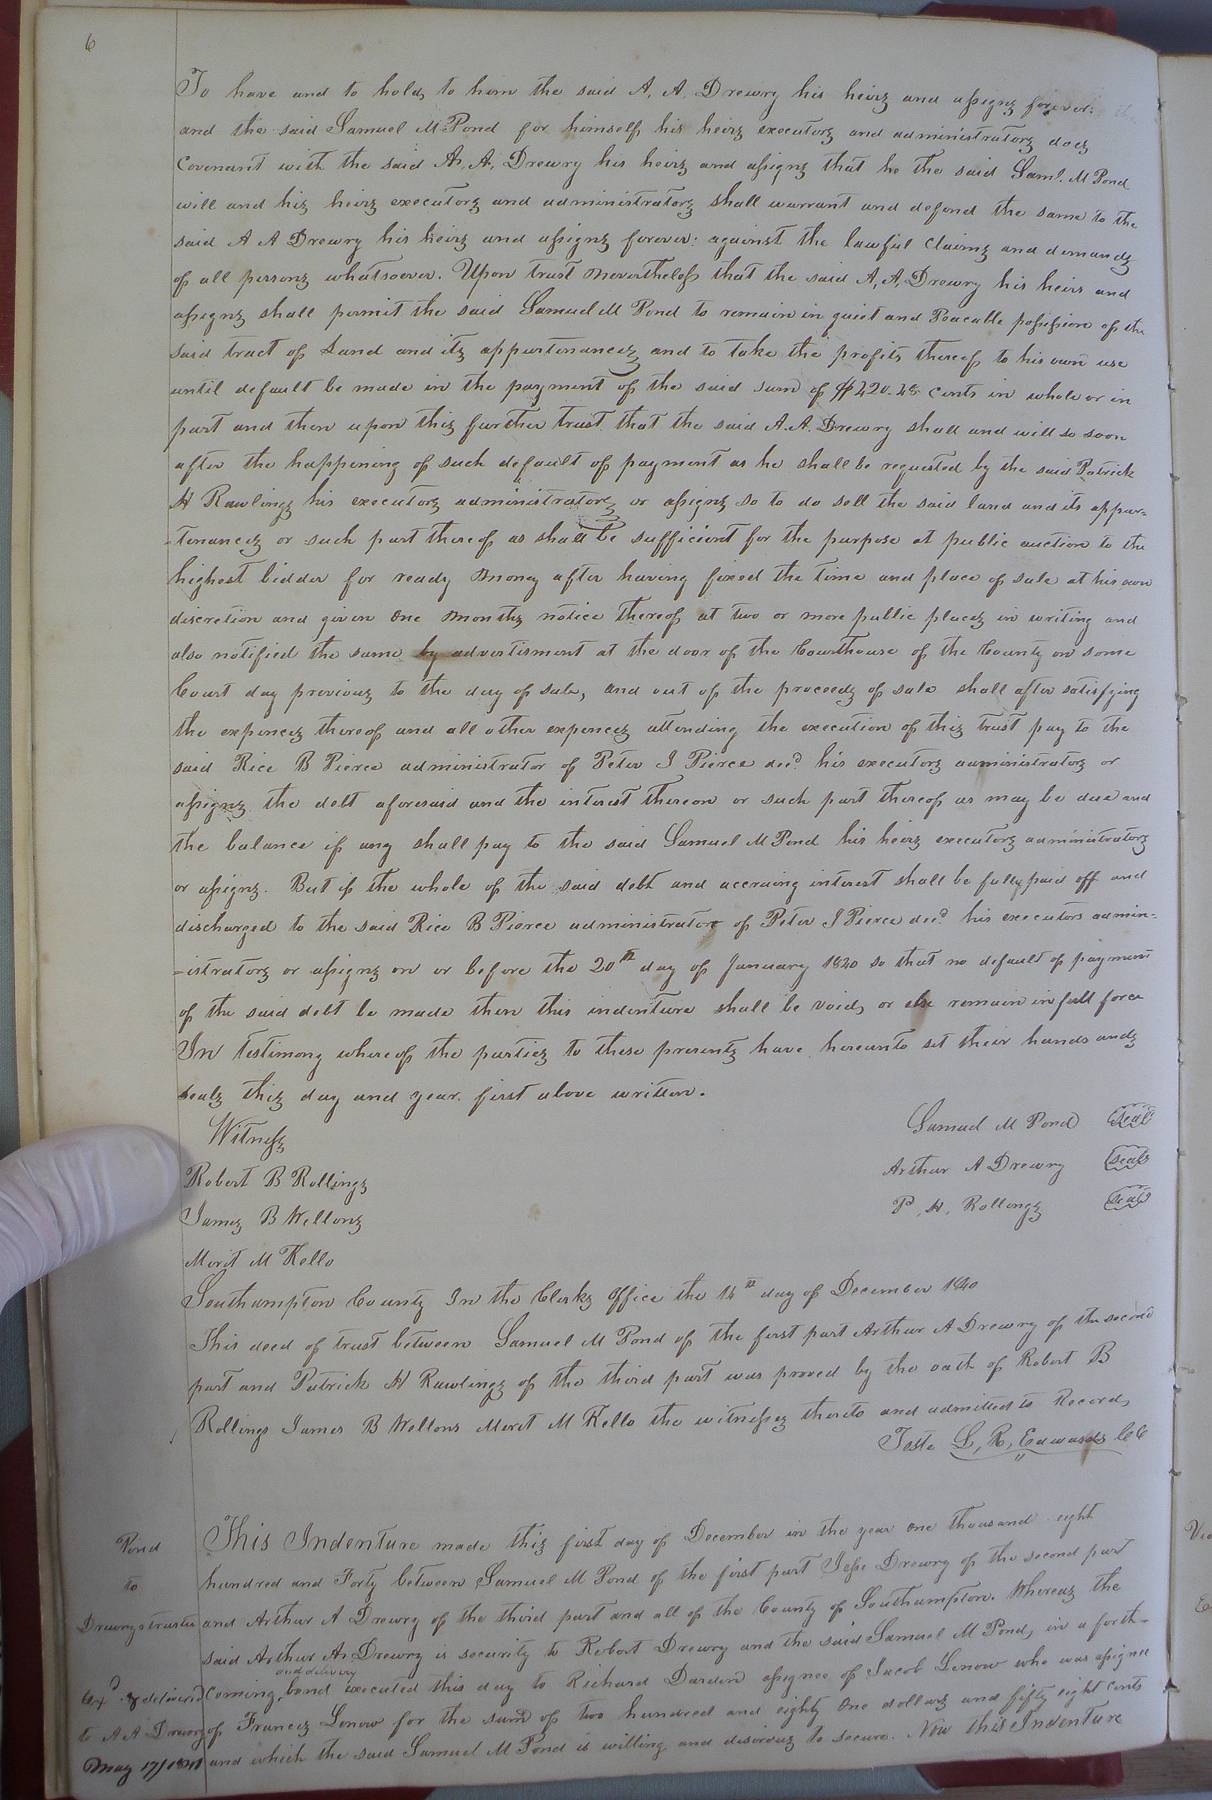 6
To have and to hold, to him the said A, A, Drewry his heirs and assigns forever:
and the said Samuel M Pond for himself his heirs executors and administrators does
Covenant with the said A, A, Drewry his heirs and assigns that he the said Saml. M Pond
will and his heirs executors and administrators shall warrant and defend the same to the
said A A Drewry his heirs and assigns forever: against the lawful Claims and demands
of all persons whatsoever. Upon trust Nevertheless that the said A, A, Drewry his heirs and
assigns shall permit the said Samuel M Pond to remain in quiet and Peacable possission of the
said tract of Land and its appurtenances, and to take the profits thereof to his own use
until default be made in the payment of the said sum of $220.28 cents in whole or in
part and then upon this further trust that the said A. A. Drewry shall and will so soon
after the happening of such default of payment as he shall be requested by the said Patrick
H Rawlings his executors administrators or assigns so to do sell the said land and its appur=
=tenances or such part thereof as shall be sufficient for the purpose at public auction to the
highest bidder for ready Money after having fixed the time and place of sale at his own
discretion and given one months notice thereof at two or more public places in writing and
also notified the same by advertisment at the door of the Courthouse of the County on some
Court day previous to the day of sale, and out of the proceeds of sale shall after satisfying
the expences thereof and all other expences attending the execution of this trust pay to the
said Rice B Pierce administrator of Peter J Pierce decd. his executors administrators or
assigns the debt aforesaid and the interest thereon or such part thereof as may be due and
the balance if any shall pay to the said Samuel M Pond his heirs executors administrators
or assigns. But if the whole of the said debt and accruing interest shall be fully paid off and
discharged to the said Rice B Pierce administrator of Peter J Pierce decd. his executors admin=
=istrators or assigns on or before the 20th day of January 1840 so that no default of payment
of the said debt be made then this indenture shall be void, or else remain in full force
In testimony whereof the parties to these presents have hereunto set their hands and
seals this day and year first above written.
Witness
Samuel M Pond seal
Robert B Rollings
Arthur A Drewry seal
James B Wellons
P. H. Rollings seal
Merit M Kello
Southampton County In the Clerks Office the 14th day of December 1840
This deed of trust between Samuel M Pond of the first part Arthur A Drewry of the second
part and Patrick H Rawlings of the third part was proved by the oath of Robert B
Rollings James B Wellons Merit M Kello the witnesses thereto and admitted to Record,
Teste L, R, Edwards CC
Pond
to
Drewrys trustee
Exd. & delivered
to A A Drewry
May 17/1841
This Indenture made this first day of December in the year One thousand eight
hundred and Forty between Samuel M Pond of the first part Jesse Drewry of the second part
and Arthur A Drewry of the third part and all of the County of Southampton. Whereas the
said Arthur A. Drewry is security to Robert Drewry and the said Samuel M Pond, in a forth=
and delivery
coming bond executed this day to Richard Darden assignee of Jacob Lenow who was assignee
of Frances Lenow for the sum of two hundred and eighty One dollars and fifty eight cents
and which the said Samuel M Pond is willing and disirous to secure. Now this Indenture